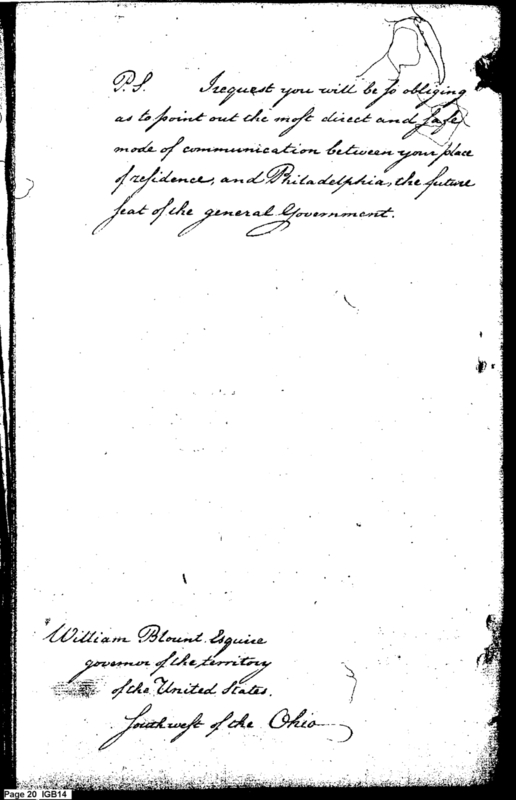 P.S. I request you will be so obliging
as to point out the most direct and safe
mode of communication between your place
of residence, and Philadelphia, the future
seat of the general Government.
William Blount Esquire
governor of the territory
of the United States.
Southwest of the Ohio
Page 20 IGB14